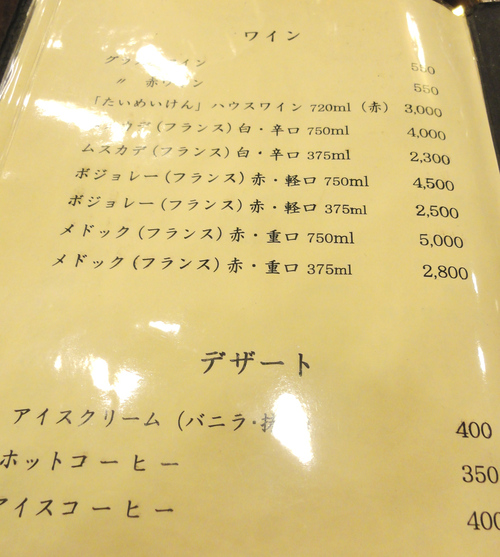 ワイン
グラスワイン 550
〃 赤ワイン 550
「たいめいけん」ハウスワイン 720ml（赤） 3,000
(フランス) 白・辛口 750ml 4,000
ムスカデ (フランス) 白・辛口 375ml 2,300
ボジョレー (フランス) 赤・軽口 750ml 4,500
ボジョレー (フランス) 赤・軽口 375ml 2,500
メドック (フランス) 赤・重口 750ml 5,000
メドック (フランス) 赤・重口 375ml 2,800
デザート
アイスクリーム (バニラ・抹 400
ホットコーヒー 350
アイスコーヒー 400